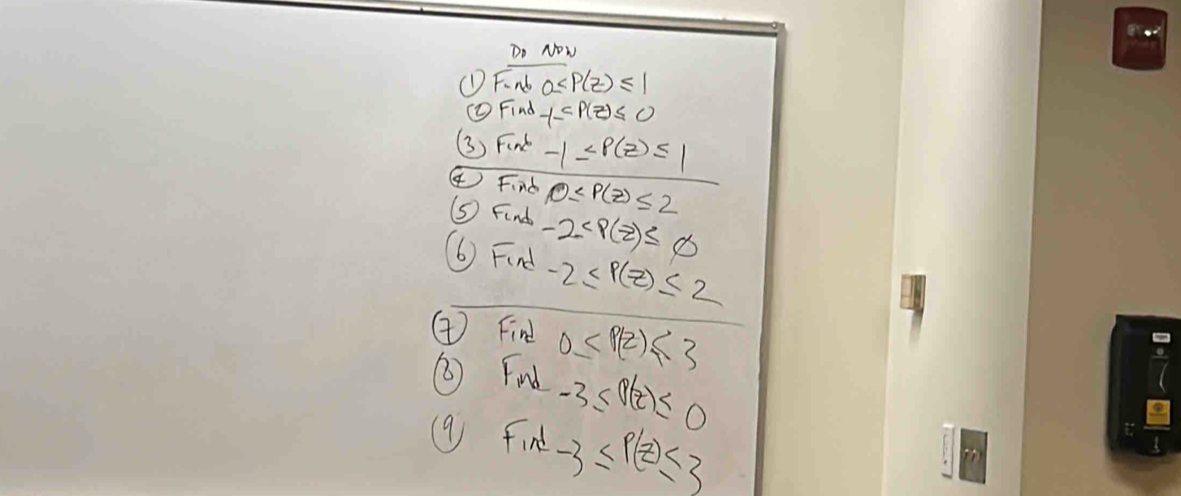 Do Now
① Find 0≤P(z)≤1
② Find -1≤P(z)≤0
③ Find -1≤P(z)≤1
④ Find 0≤P(z)≤2
⑤ Find -2≤P(z)≤0
⑥ Find -2≤P(z)≤2
⑦ Find 0≤P(z)≤3
⑧ Find -3≤P(z)≤0
⑨ Find -3≤P(z)≤3